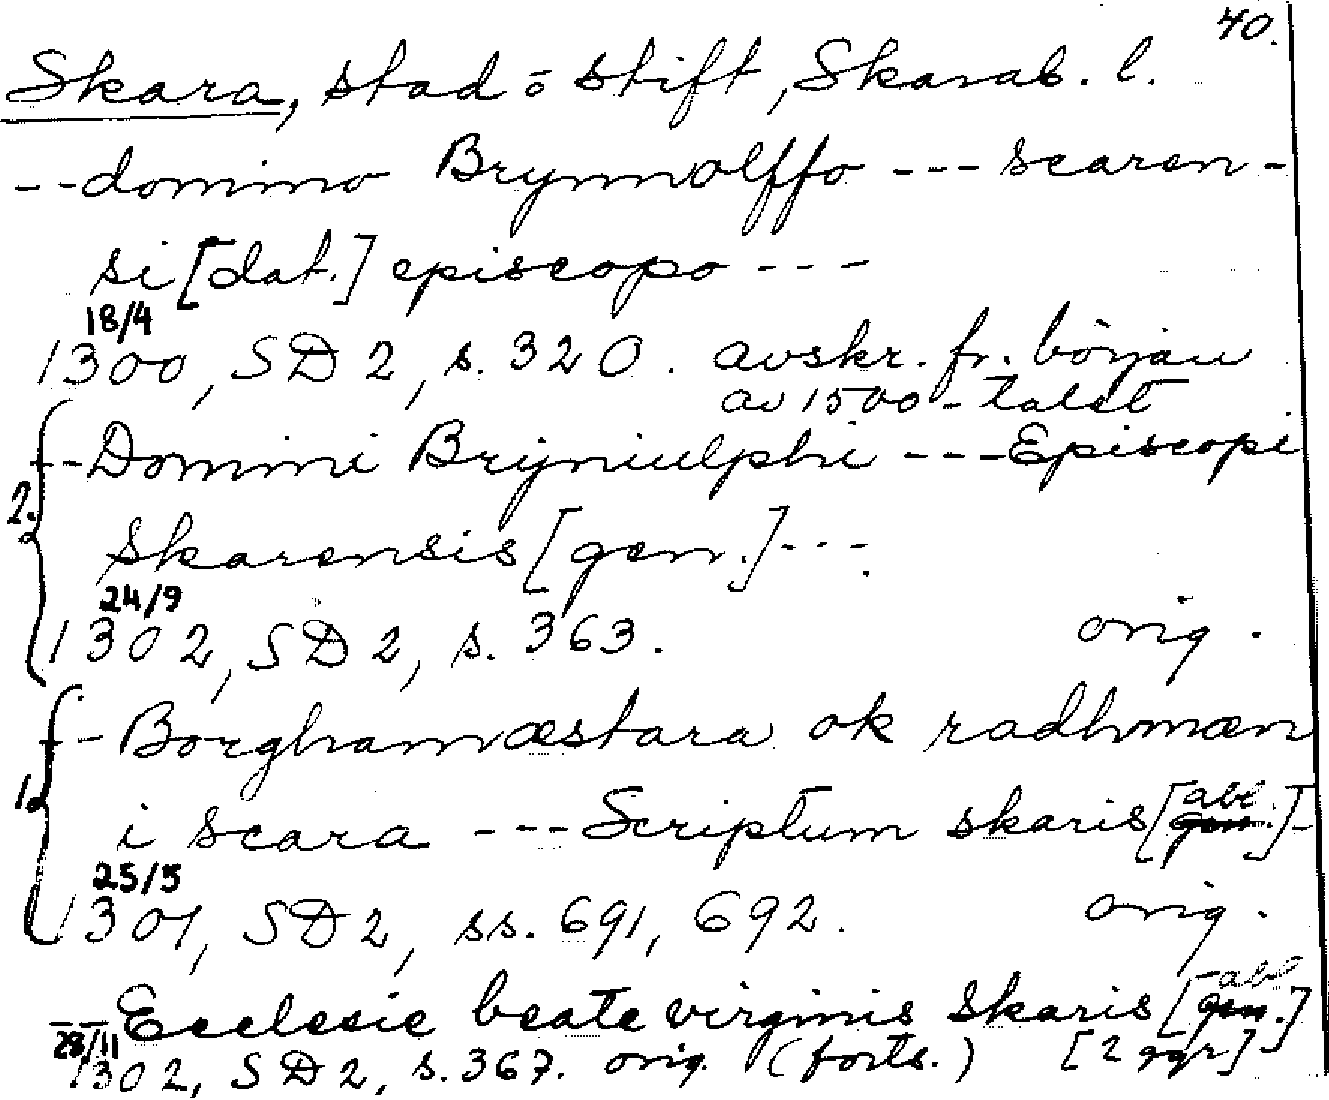 40.
Skara, stad o stift, Skarab. l.
-- domino Brynnolffo --- scaren-
si [dat.] episcopo ---
18/4
1300, SD 2, s. 320. avskr. fr. början
av 1500-talet
2. -- Domini Brijniulphi --- Episcopi
Skarensis [gen.] ---
24/9
1302, SD 2, s. 363. orig.
1. -- Borghamæstara ok radhmæn
i scara --- Scriptum skaris [abl.] -
25/5
1301, SD 2, ss. 691, 692. orig.
-- Ecclesie beate virginis Skaris [abl.]
28/11
1302, SD 2, s. 367. orig. (forts.) [2 ggr]